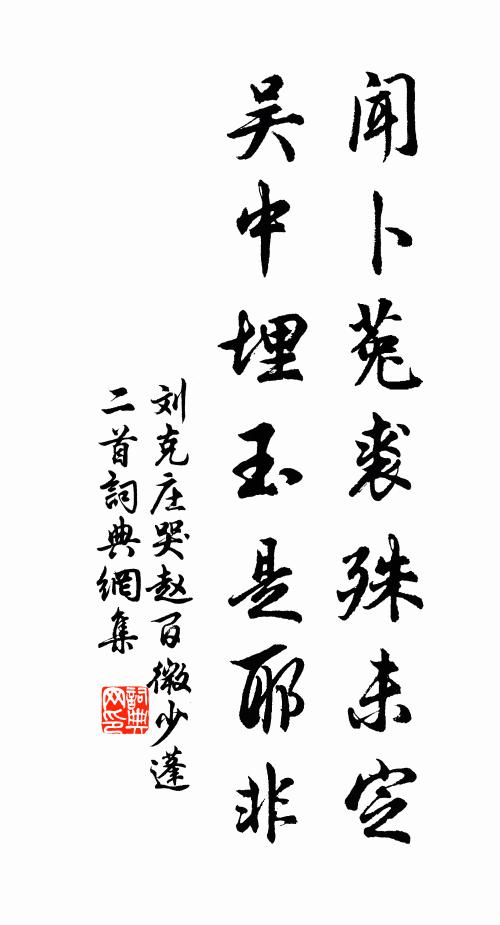 闻卜菟裘殊未定
吴中埋玉是耶非
刘克庄哭赵百微少蓬
二首詞典網集
詞典
网印